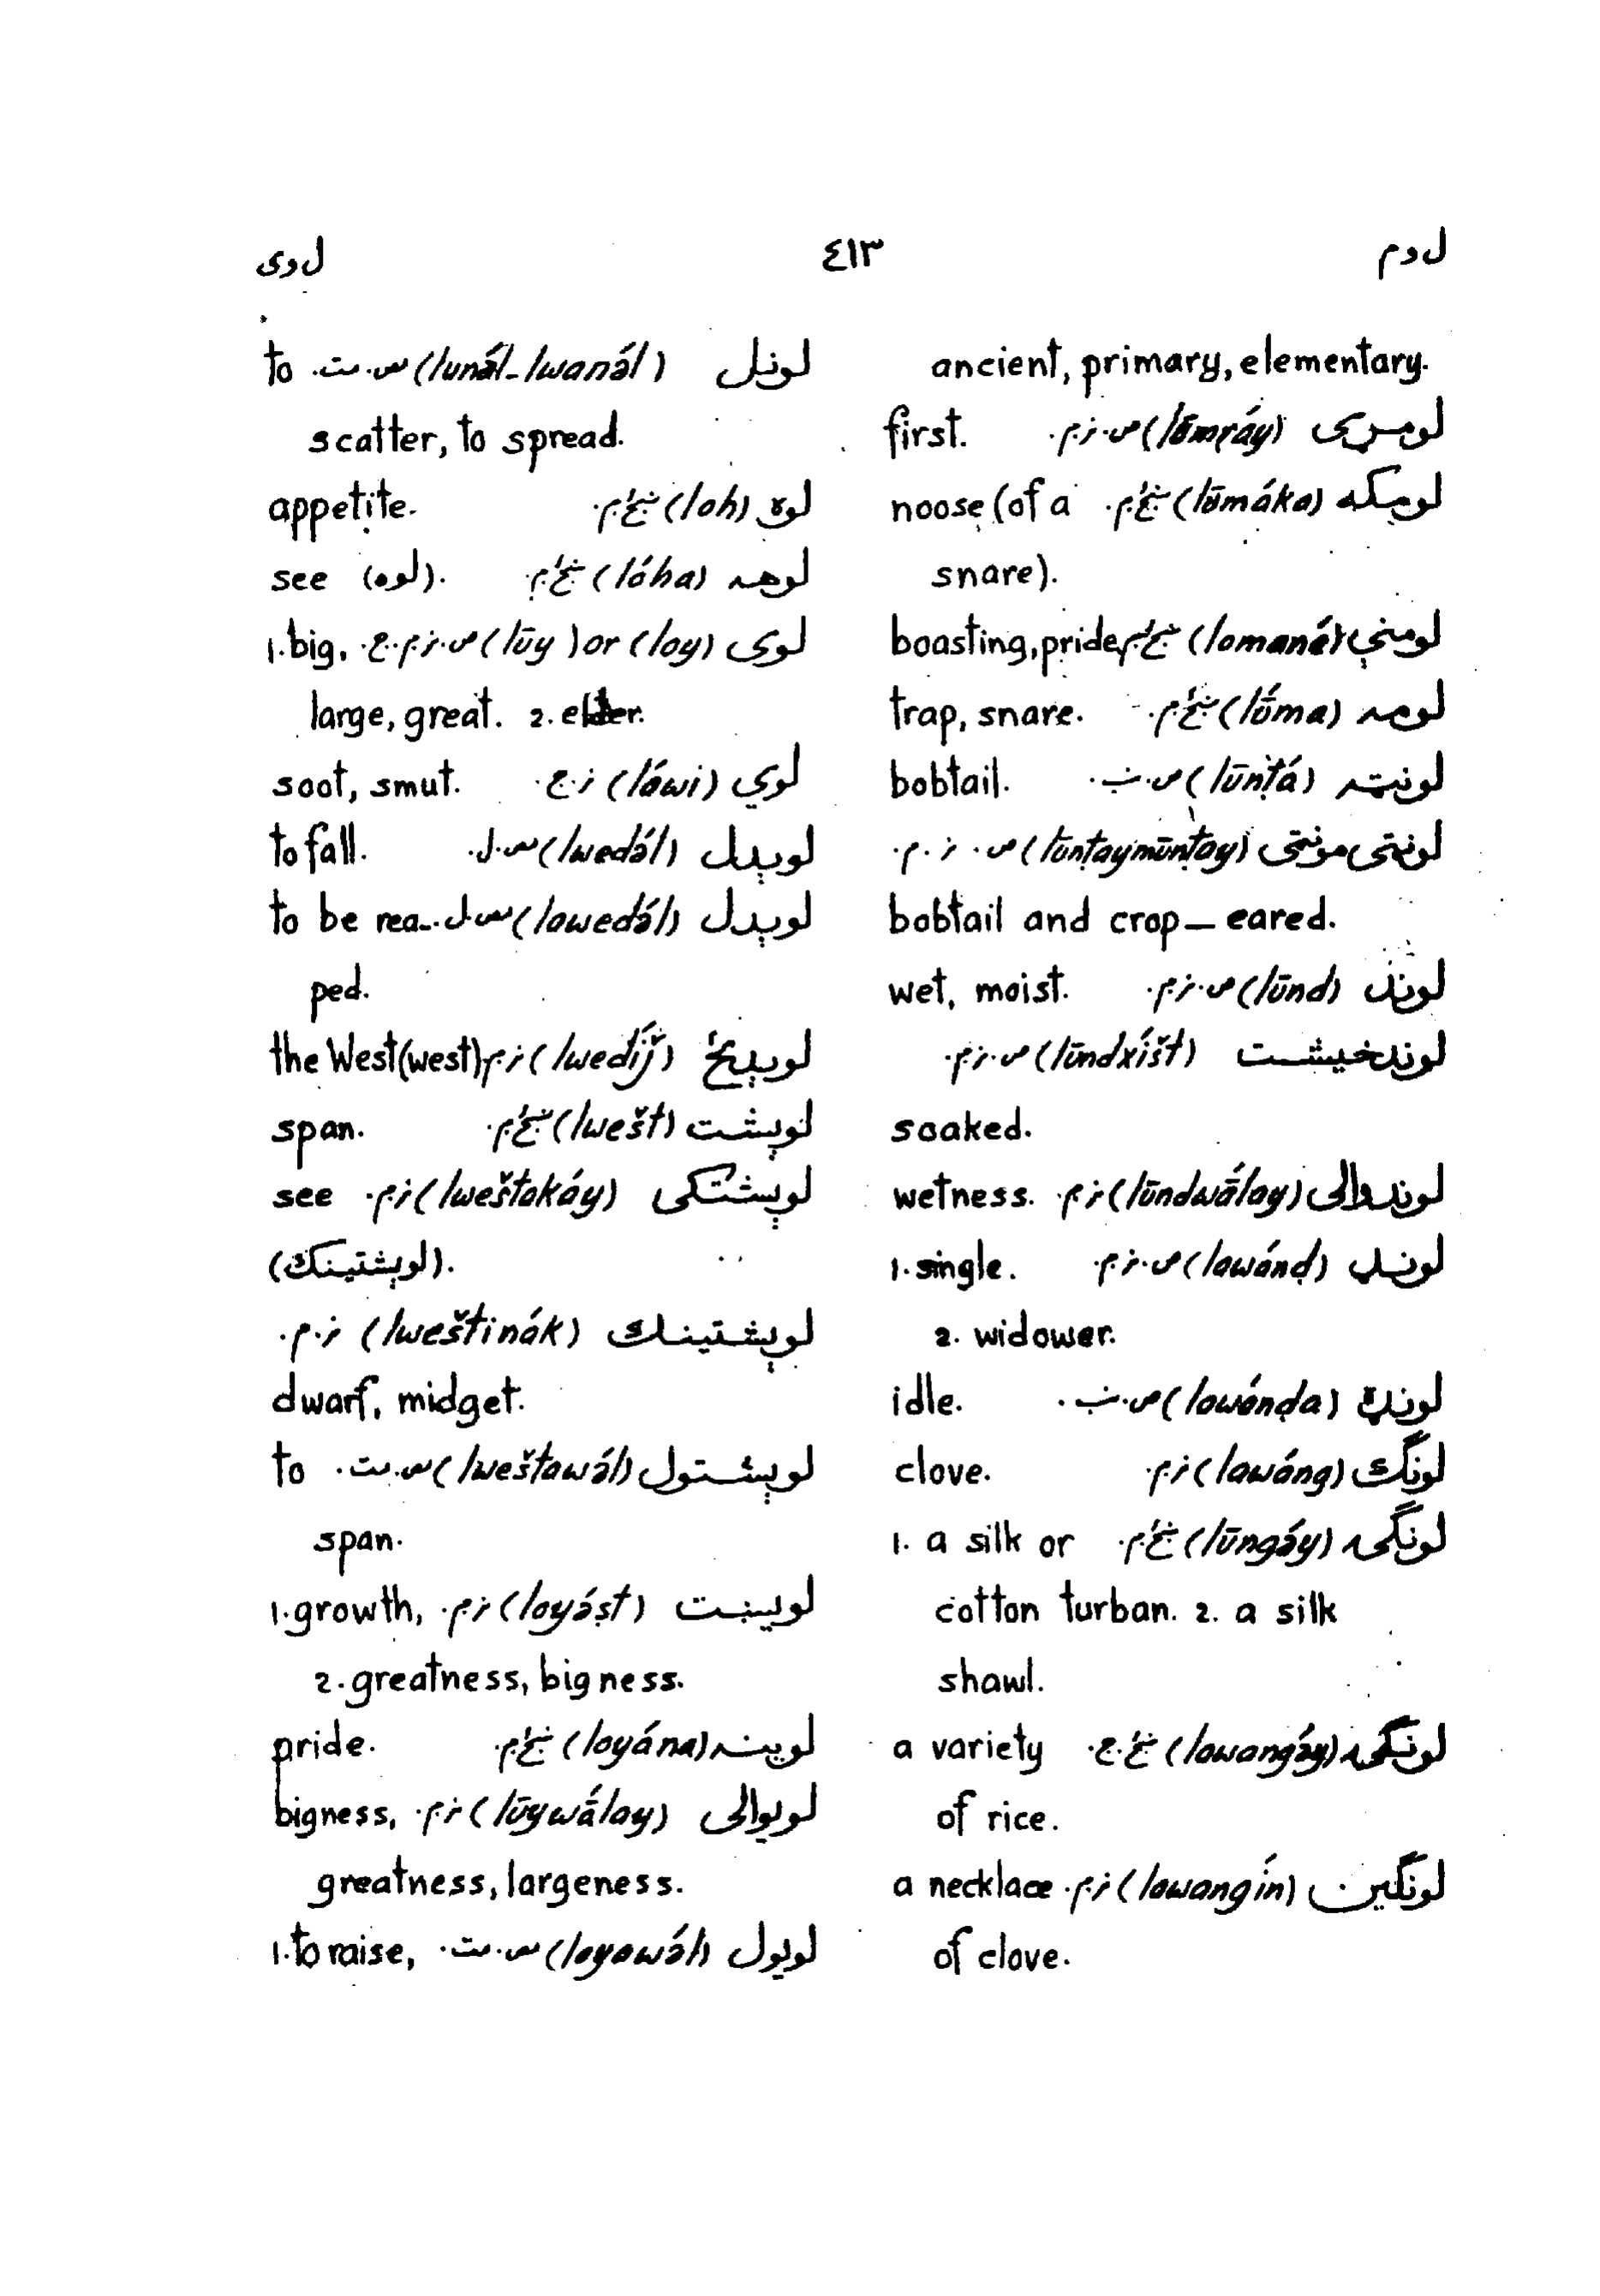 ل و م ٤١٣ ل و ى
ancient, primary, elementary.
لومړی (lōmṛáy) ص. ز. م. first.
لومکه (lūmáka) ښځ. م. noose (of a
snare).
لومنې (lomané) ښځ. م. boasting, pride
لومه (lū́ma) ښځ. م. trap, snare.
لونټه (lūnṭá) ص. ښ. bobtail.
لونټی مونټی (lūnṭaymūnṭay) ص. ز. م.
bobtail and crop_ eared.
لوند (lūnd) ص. ز. م. wet, moist.
لوندخيشت (lūndxíšt) ص. ز. م.
soaked.
لوندوالی (lūndwā́lay) ز. م. wetness.
لونډ (lawánḍ) ص. ز. م. 1. single.
2. widower.
لونډه (lawánḍa) ص. ښ. idle.
لونګ (lawáng) ز. م. clove.
لونګۍ (lūngə́y) ښځ. م. 1. a silk or
cotton turban. 2. a silk
shawl.
لونګۍ (lawangə́y) ښځ. ج. a variety
of rice.
لونګين (lawangín) ز. م. a necklace
of clove.
لونل (lunə́l_lwanə́l) س. مت. to
scatter, to spread.
لوه (loh) ښځ. م. appetite.
لوهه (lóha) ښځ. م. see (لوه).
لوی (loy) or (lūy) ص. ز. م. ج. 1. big,
large, great. 2. elder.
لوي (láwi) ز. ج. soot, smut.
لوېدل (lwedə́l) س. ل. to fall.
لوېدل (lawedə́l) س. ل. to be rea_
ped.
لوېديځ (lwedíj̆) ز. م. the West (west)
لوېشت (lwešt) ښځ. م. span.
لوېشتکی (lweštakáy) ز. م. see
(لوېشتينک).
لوېشتينک (lweštinák) ز. م.
dwarf, midget.
لوېشتول (lweštawə́l) س. مت. to
span.
لويښت (loyə́ṣt) ز. م. 1. growth,
2. greatness, bigness.
لوينه (loyána) ښځ. م. pride.
لويوالی (lūywā́lay) ز. م. bigness,
greatness, largeness.
لويول (loyawə́l) س. مت. 1. to raise,